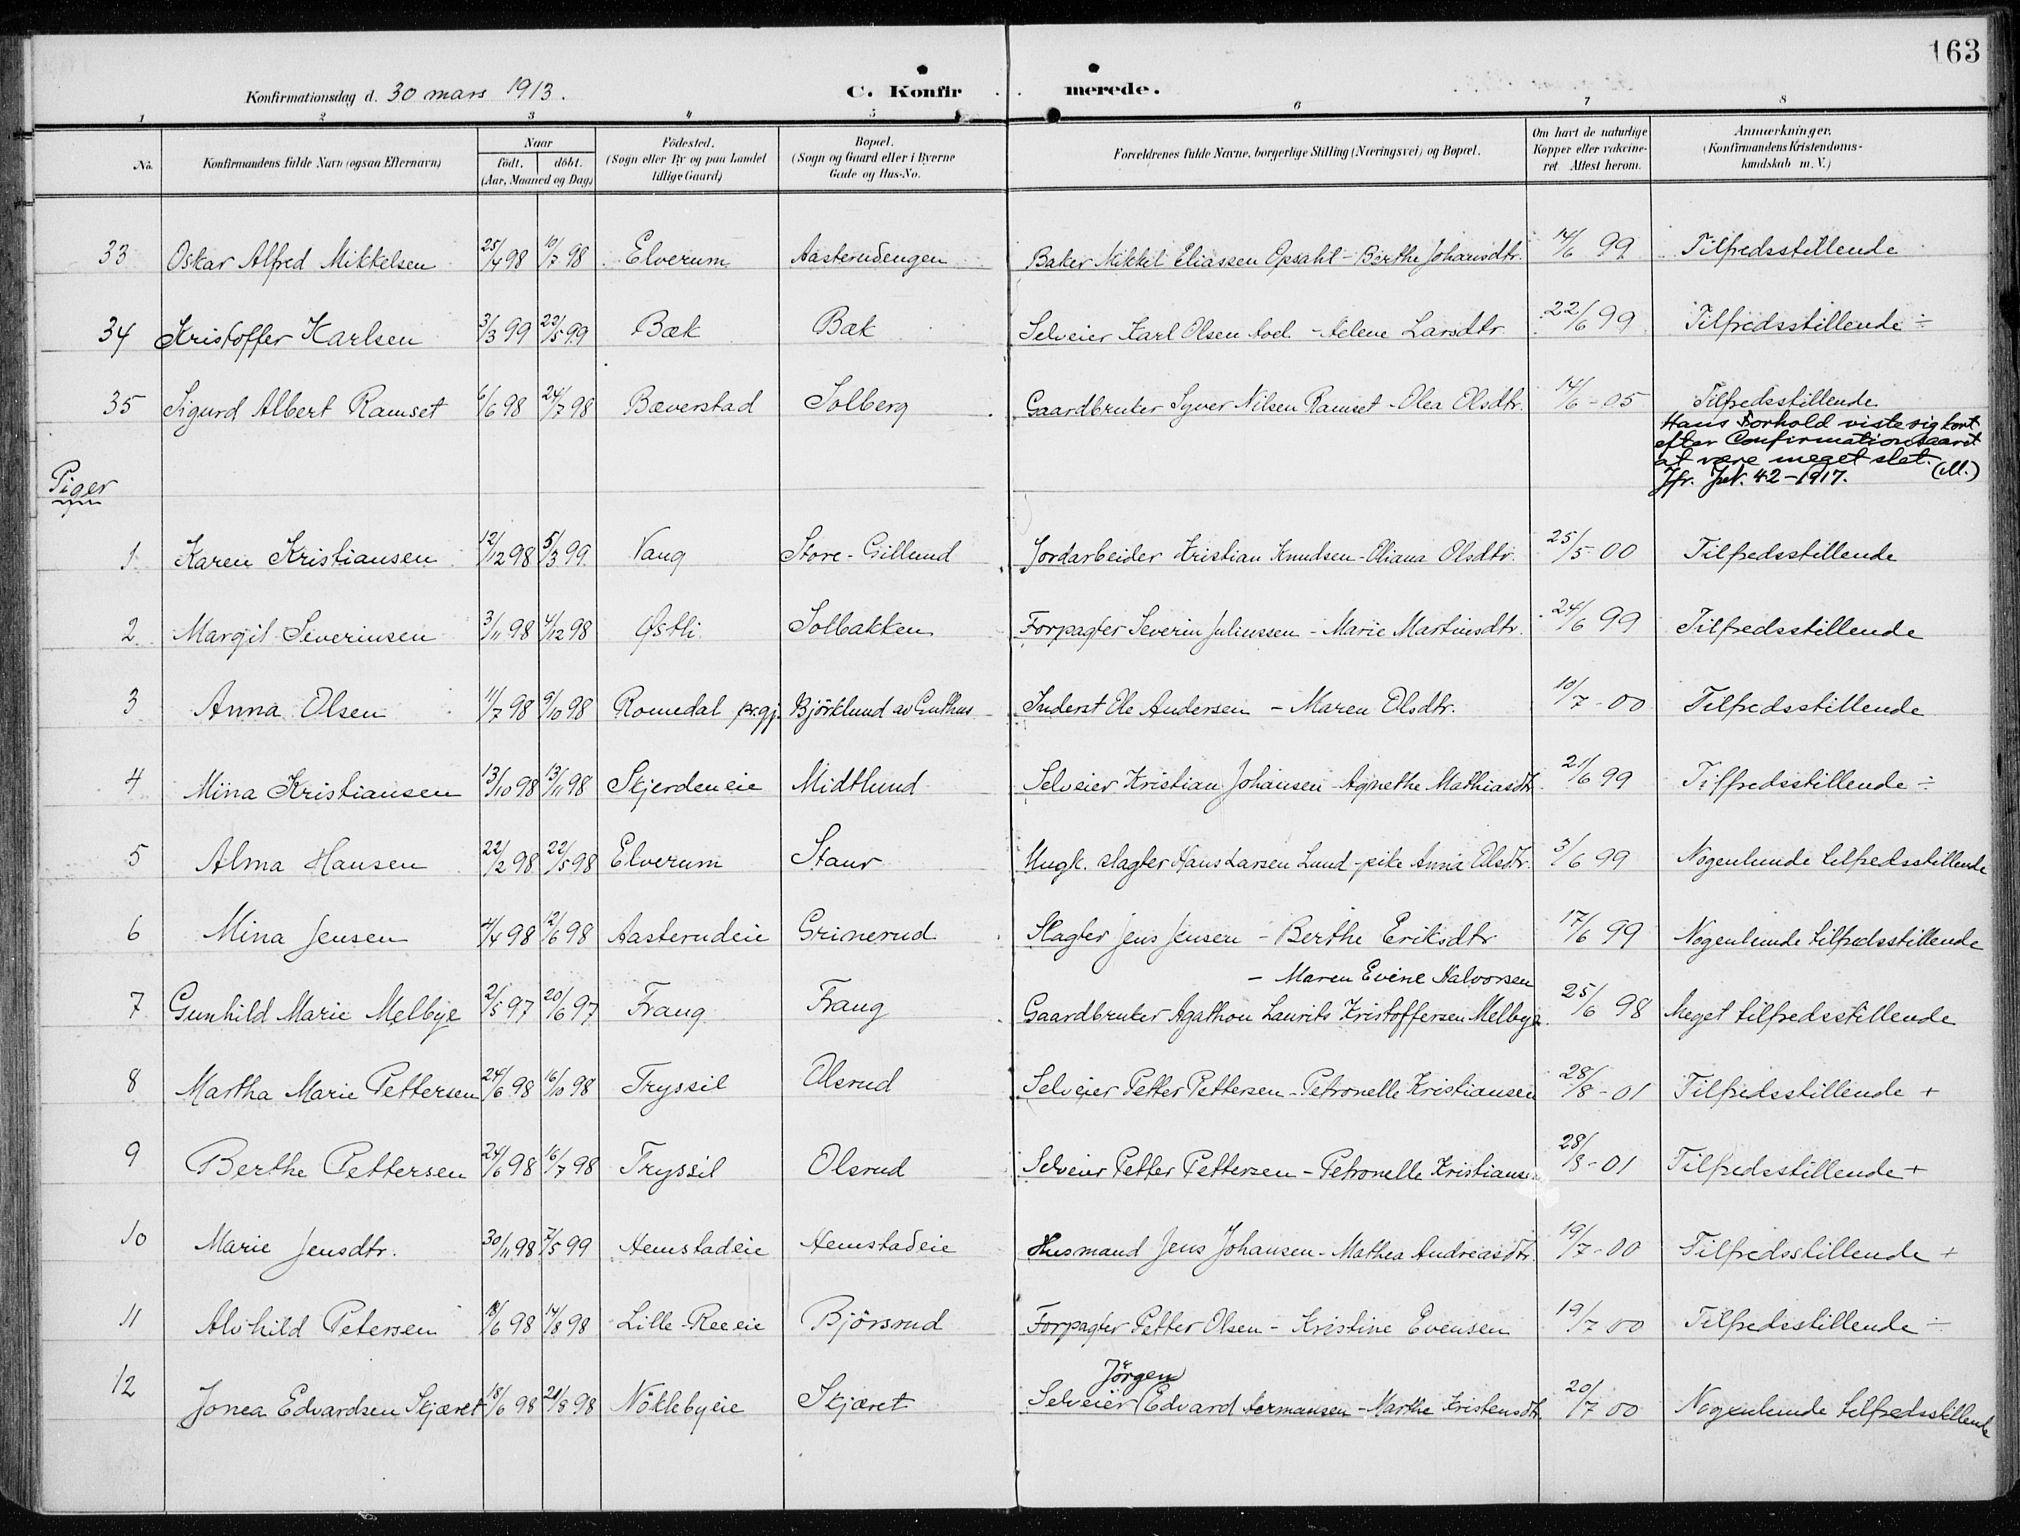 163
Konfirmationsdag d. 30 mars 1913.
C. Konfirmerede.
1 2 3 4 5 6 7 8
No.
Konfirmandens fulde Navn (ogsaa Efternavn)
Naar
født. døbt.
(Aar, Maaned og Dag)
Fødested.
(Sogn eller By og paa Landet
tillige Gaard)
Bopæl.
(Sogn og Gaard eller i Byerne
Gade og Hus-No.
Forældrenes fulde Navne, borgerlige Stilling (Næringsvei) og Bopæl.
Om havt de naturlige
Kopper eller vakcine-
ret Attest herom.
Anmærkninger.
(Konfirmandens Kristendoms-
kundskab m. V.)
33 Oskar Alfred Mikkelsen 25/4 98 10/7 98 Elverum Aasterudengen Baker Mikkel Eliassen Opsahl - Berthe Johansdtr. 14/6 99 Tilfredsstillende
34 Kristoffer Karlsen 3/3 99 22/5 99 Bæk Bæk Selveier Karl Olsen - Helene Larsdtr 22/6 99 Tilfredsstillende ÷
35 Sigurd Albert Ramset 6/6 98 24/7 98 Bæverstad Solberg Gaardbruker Syver Nilsen Ramset - Olea Olsdtr. 14/6 - 05 Tilfredsstillende
Hans Forhold viste sig kort
efter Confirmationsaaret
at være meget slet. (M.)
Jfr. Jnl. 42-1917.
Piger
1 Karen Kristiansen 12/12 98 5/3 99. Vang Store-Gillund Jordarbeider Kristian Knudsen - Oliana Olsdtr. 25/5 - 00 Tilfredsstillende
2 Margit Severinsen 3/11 98 4/12 98 Østli Solbakken Forpagter Severin Juliussen - Marie Martinsdtr. 24/6 99 Tilfredsstillende
3 Anna Olsen 11/7 98 9/10 98 Romedal prgj. Björklund av Guthus Inderst Ole Andersen - Maren Olsdtr. 10/7 - 00 Tilfredsstillende
4 Mina Kristiansen 13/10 98 13/11 98 Skjerden eie Midtlund Selveier Kristian Johansen - Agnethe Mathiasdtr. 21/6 99 Tilfredsstillende ÷
5 Alma Hansen 22/2 98 22/5 98 Elverum Staur Ungk. slagter Hans Larsen Lund - pike Anna Olsdtr. 3/6 99 Nogenlunde tilfredsstillende
6 Mina Jensen 4/4 98 12/6 98 Aasterudeie Grinerud Slagter Jens Jensen - Berthe Eriksdtr 17/6 99 Nogenlunde tilfredsstillende
- Maren Evine Halvorsen
7 Gunhild Marie Melbye 2/5 97 20/6 97 Frang Frang Gaardbruker Agathon Laurits Kristoffersen Melbye. 25/6 98 Meget tilfredsstillende
8 Martha Marie Pettersen 24/6 98 16/10 98 Tryssil Olsrud Selveier Petter Pettersen - Petronelle Kristiansen 28/8 - 01 Tilfredsstillende +
9 Berthe Pettersen 24/6 98 16/7 98 Tryssil Olsrud Selveier Petter Pettersen - Petronelle Kristianse 28/8 - 01 Tilfredsstillende +
10 Marie Jensdtr. 30/11 98 7/5 99 Hemstadeie Hemstadeie Husmand Jens Johansen - Mathea Andreasdtr. 19/7 - 00 Tilfredsstillende +
11 Alvhild Petersen 18/6 98 14/8 98 Lille-Ree eie Björsrud Forpagter Petter Olsen - Kristine Evensen 19/7 00 Tilfredsstillende ÷
Jörgen
12 Jonea Edvardsen Skjæret 18/6 98 21/8 98 Nöklebyeie Skjæret Selveier (Edvard Hermansen - Marthe Kristensdtr. 20/7 00 Nogenlunde tilfredsstillende